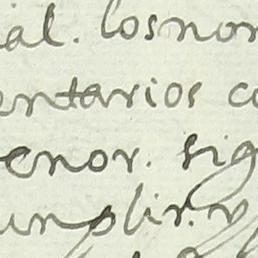 ial. los nom
entarios co
enor. sig
umplir. y